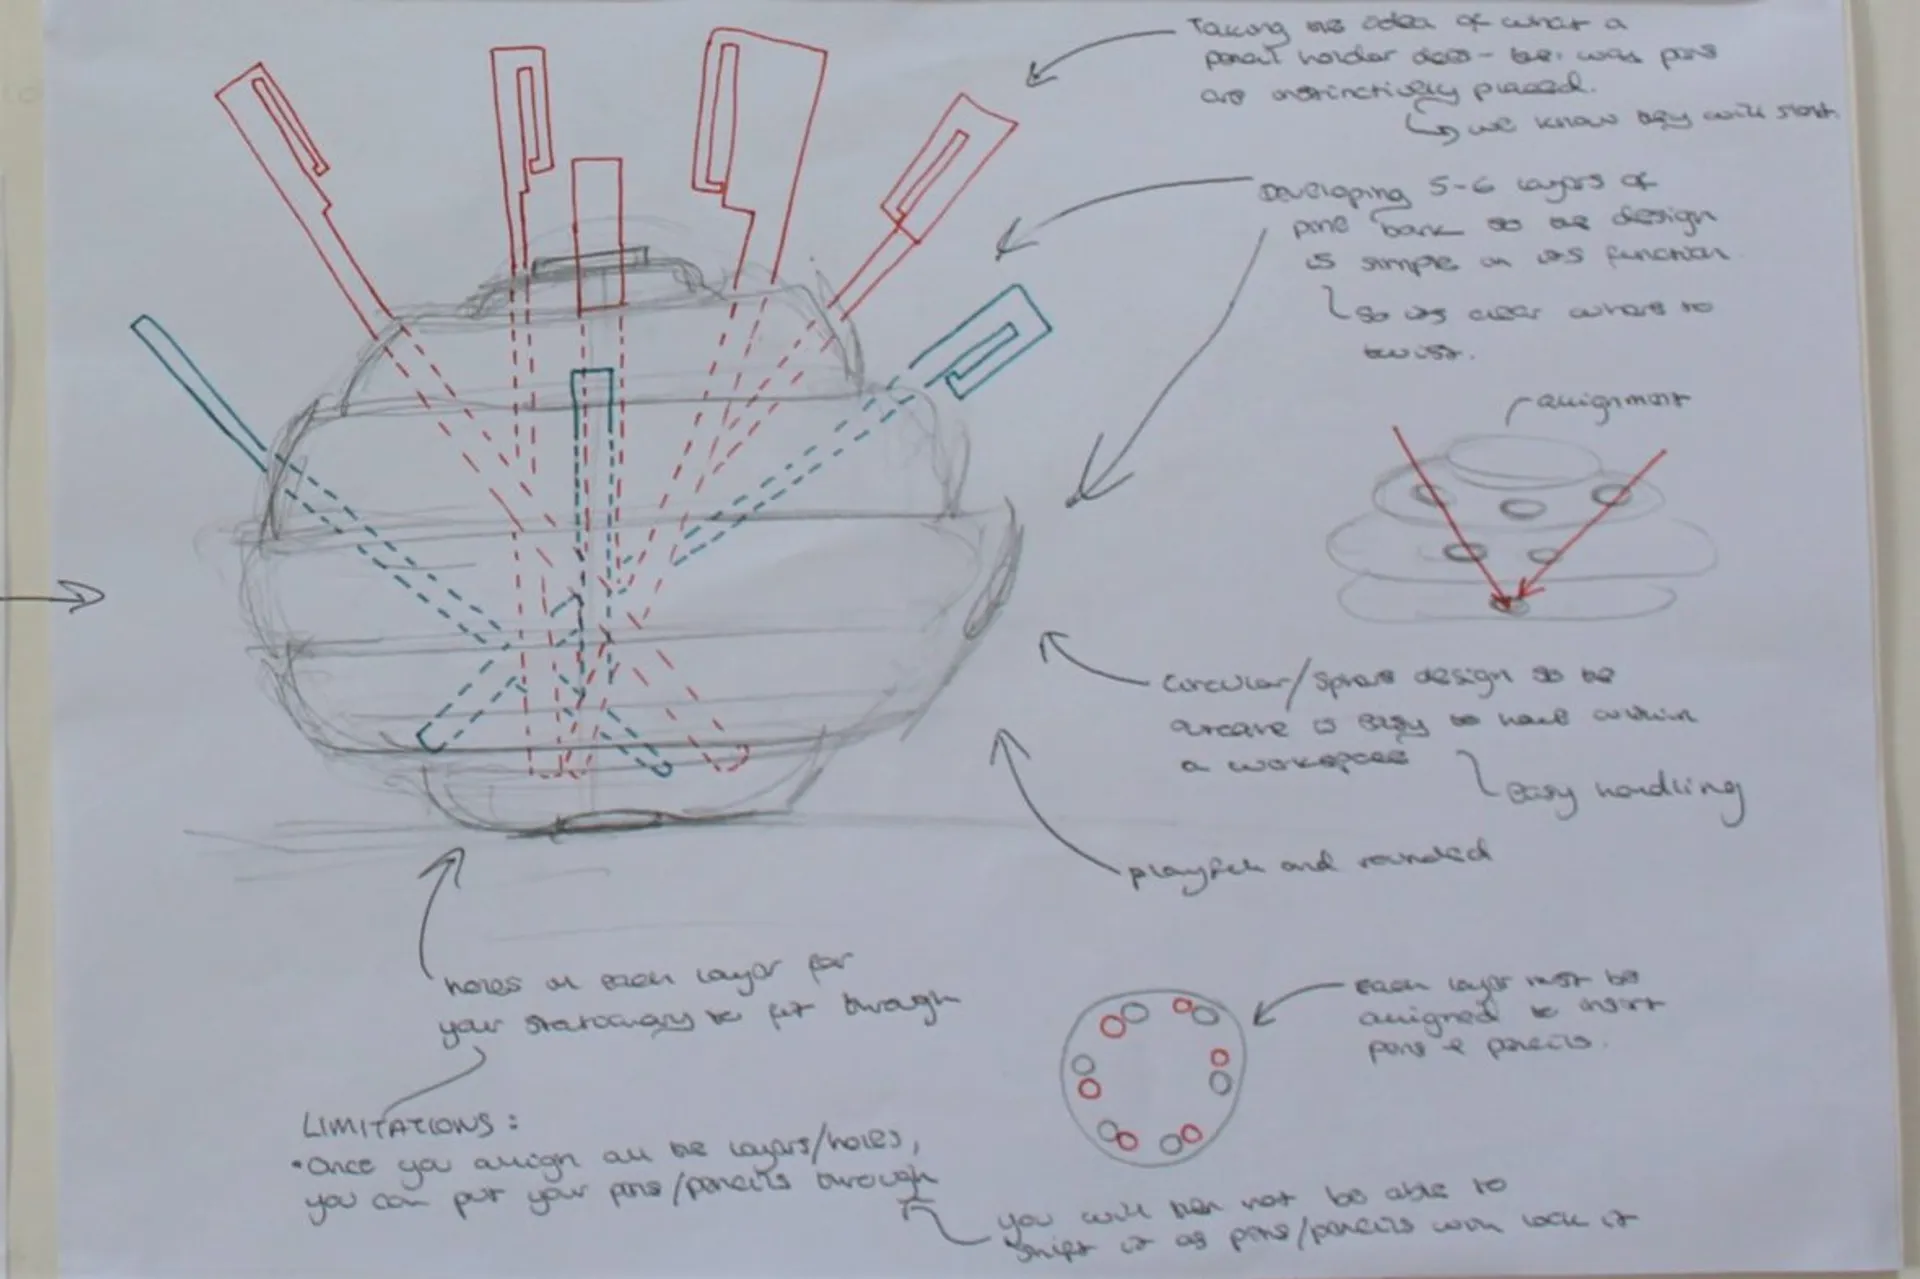 Taking the idea of what a
pencil holder does - the way pens
are instinctively placed.
↳ we know they will slant.
Developing 5-6 layers of
pine bark so the design
is simple in its function
so its clear where to
twist.
alignment
circular/sphere design so the
artefact is easy to have within
a workspace
easy handling
playful and rounded
holes in each layer for
your stationary to fit through
Each layer must be
alligned to insert
pens & pencils.
LIMITATIONS:
•Once you allign all the layers/holes,
you can put your pens/pencils through
you will then not be able to
shift it as pens/pencils will lock it